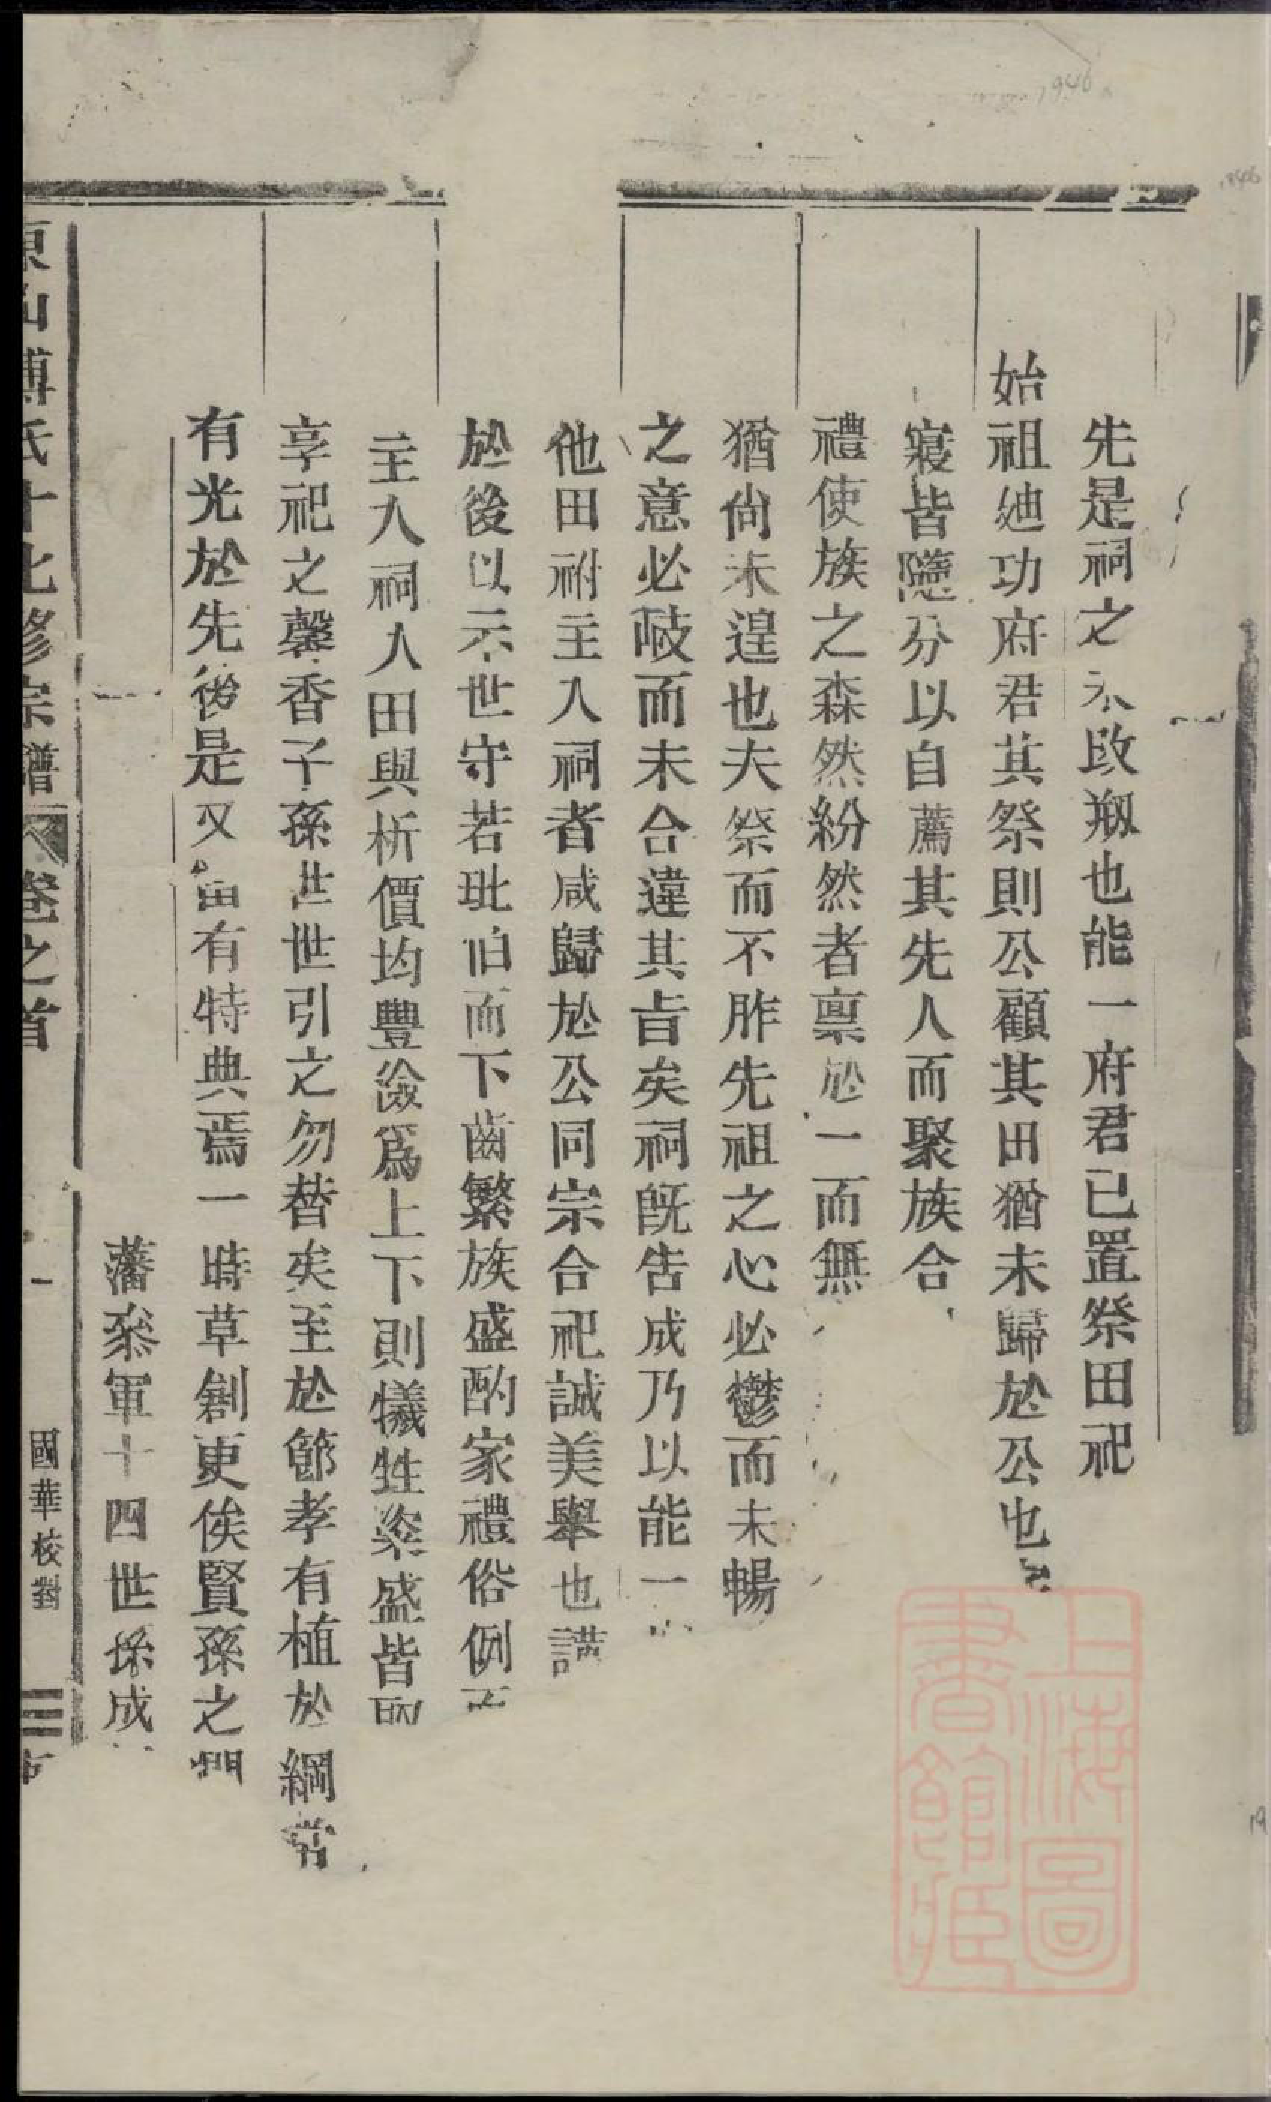 先是祠之未改剏也能一府君已置祭田祀
始祖廸功府君其祭則公顧其田猶未歸於公也
寢皆隨分以自薦其先人而聚族合
禮使族之森然紛然者禀於一而無
猶尙未遑也夫祭而不胙先祖之心必鬱而未暢
之意必岐而未合違其㫖矣祠旣告成乃以能一
他田祔主入祠者咸歸於公同宗合祀誠美舉也講
於後以示世守若玭伯而下齒繁族盛酌家禮俗例而
主入祠人田與析價均豐儉爲上下則犧牲粢盛皆取
享祀之馨香子孫世世引之勿替矣至於節孝有植於綱常
有光於先後是又當有特典焉一時草創更俟賢孫之潤
藩叅軍十四世孫成
東山傅氏十七修宗譜 卷之首
一
國華校對
上海圖書館藏